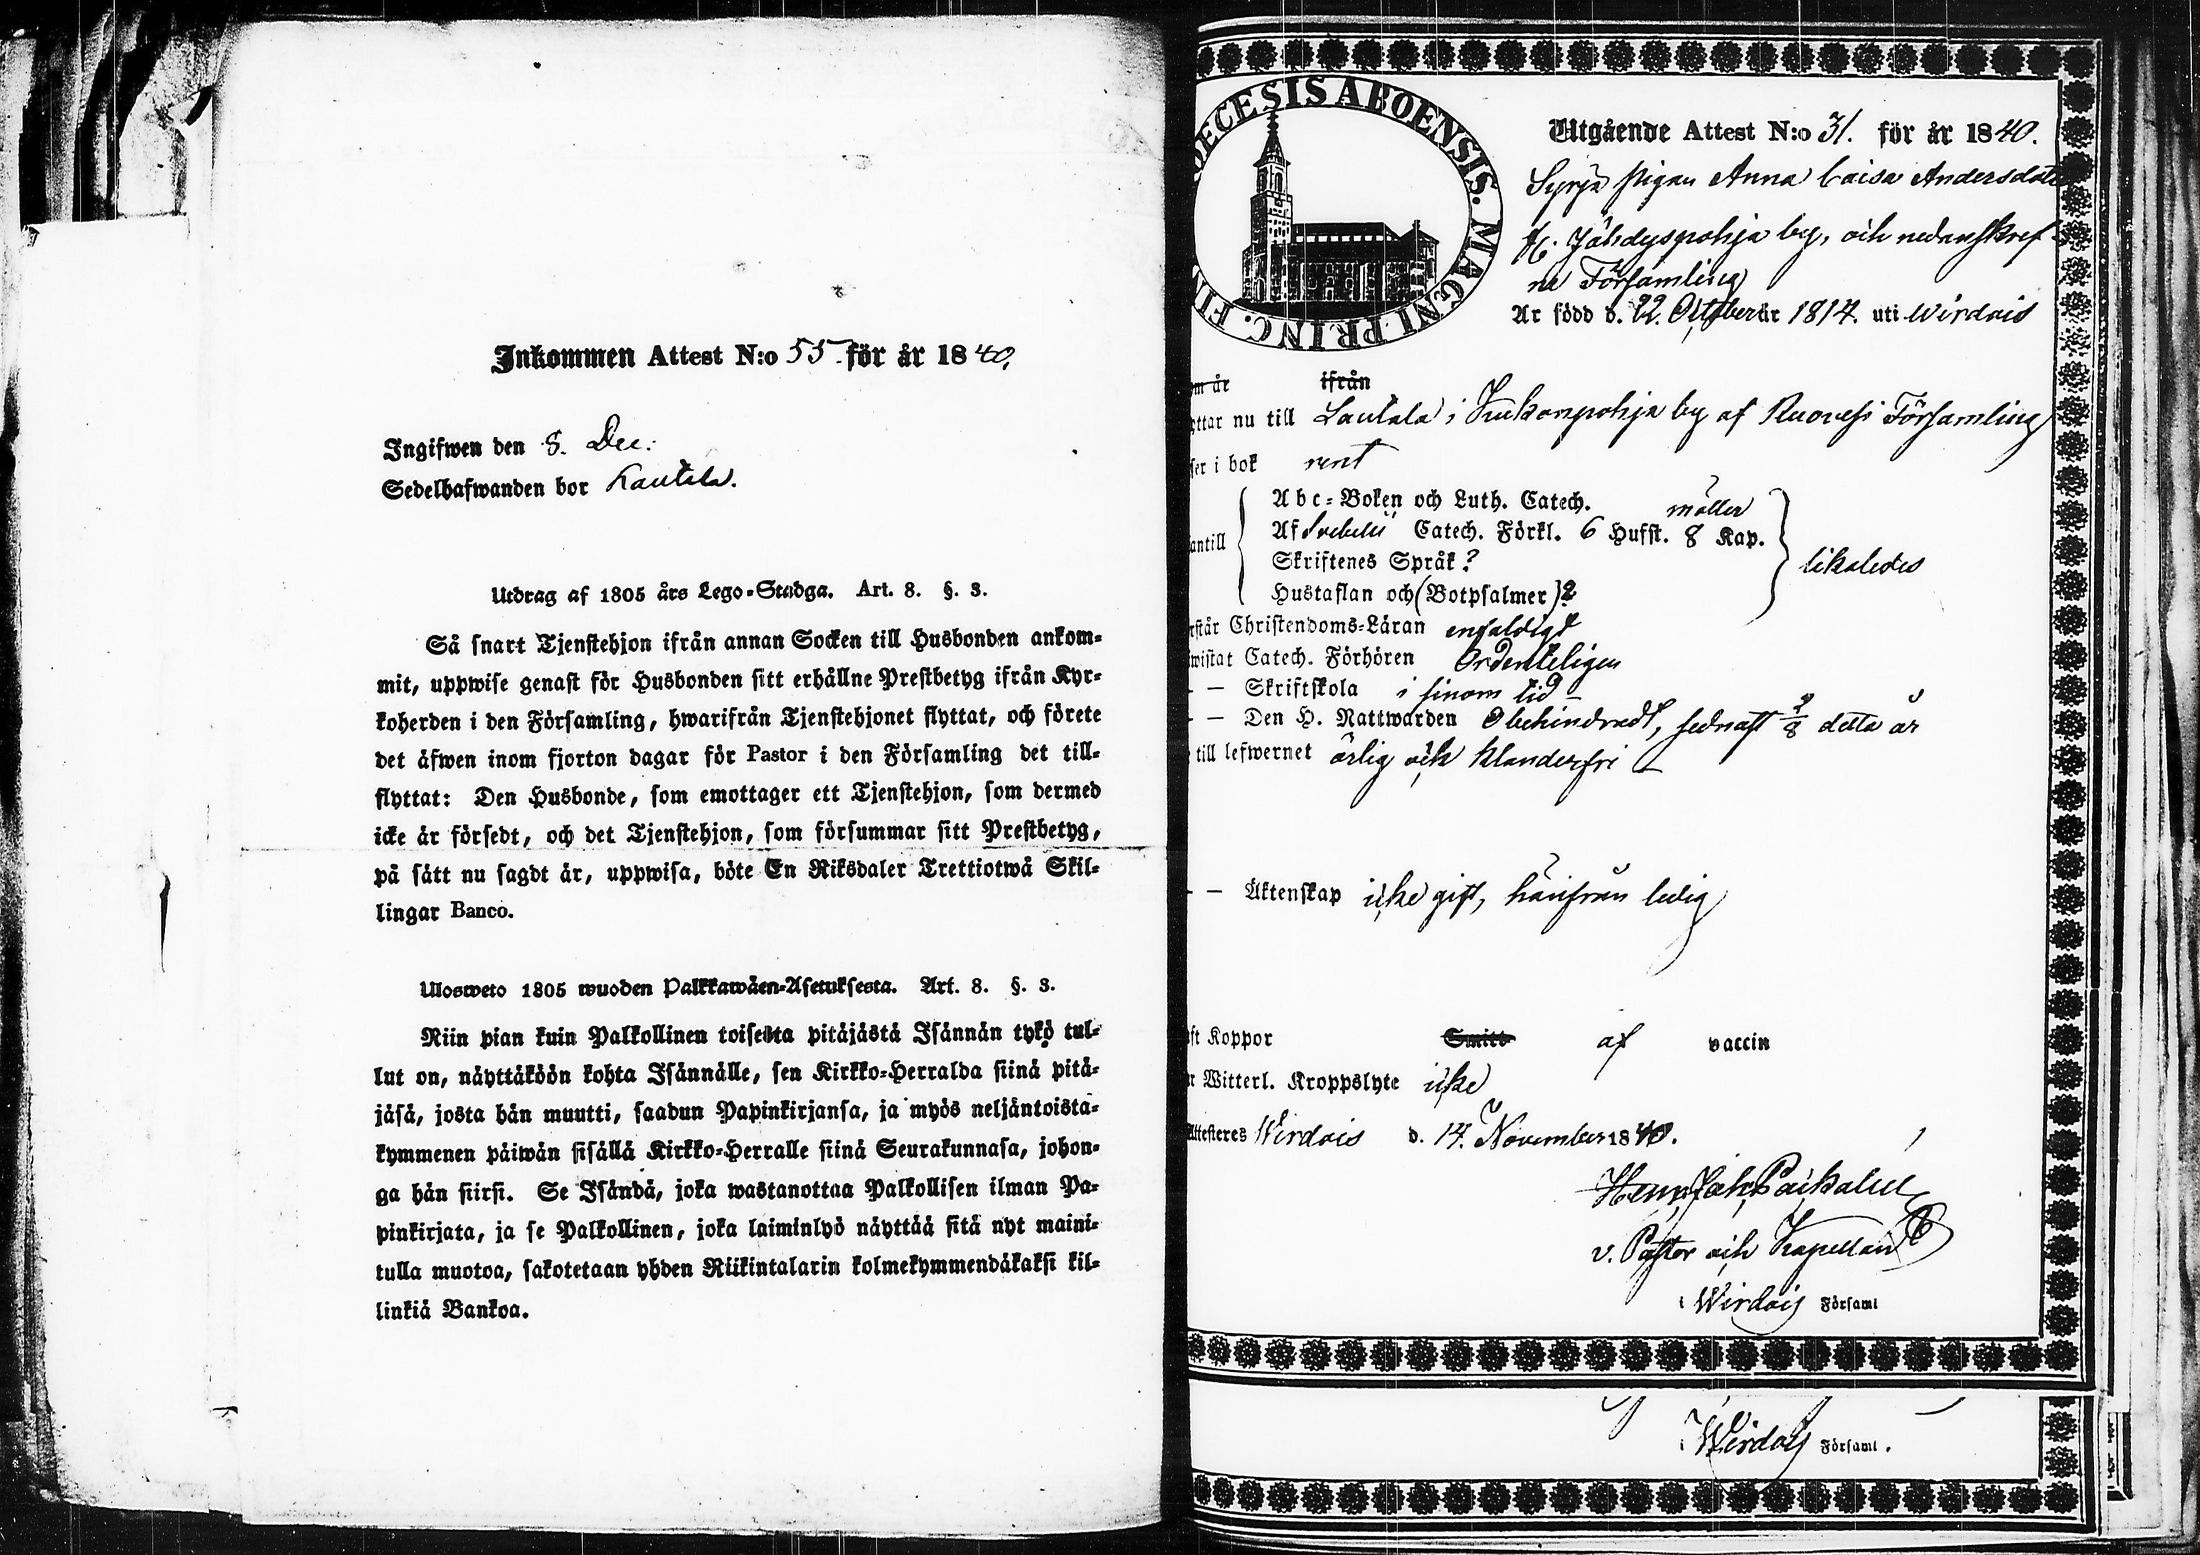 Inkommen Attest N:o 55. för år 1840.
Ingifwen den 8. Dec:
Sedelhafwanden bor Lautala.
Utdrag af 1805 års Lego-Stadga. Art. 8. §. 3.
Så snart Tjenstehjon ifrån annan Socken till Husbonden ankom-
mit, uppwise genast för Husbonden sitt erhållne Prestbetyg ifrån Kyr-
koherden i den Församling, hwarifrån Tjenstehjonet flyttat, och förete
det äfwen inom fjorton dagar för Pastor i den Församling det till-
flyttat: Den Husbonde, som emottager ett Tjenstehjon, som dermed
icke är försedt, och det Tjenstehjon, som försummar sitt Prestbetyg,
på sätt nu sagdt är, uppwisa, böte En Riksdaler Trettiotwå Skil-
lingar Banco.
Ulosweto 1805 wuoden Palkkawäen-Asetuksesta. Art. 8. §. 3.
Niin pian kuin Palkollinen toisesta pitäjästä Isännän tykö tul-
lut on, näyttäköön kohta Isännälle, sen Kirkko-Herralda siinä pitä-
jäsä, josta hän muutti, saadun Papinkirjansa, ja myös neljäntoista-
kymmenen päiwän sisällä Kirkko-Herralle siinä Seurakunnasa, johon-
ga hän siirsi. Se Isändä, joka wastanottaa Palkollisen ilman Pa-
pinkirjata, ja se Palkollinen, joka laiminlyö näyttää sitä nyt maini-
tulla muotoa, sakotetaan yhden Riikintalarin kolmekymmendäkaksi kil-
linkiä Bankoa.
OECESIS ABOENSIS. MAGNI PRINC. FIN
Utgående Attest N:o 31. för år 1840.
Syrjä pigan Anna Caisa Andersdot
fr. Jähdyspohja by, och nedanskref
ne Församling
Är född d. 22. October år 1814. uti Wirdois
om år ifrån
yttar nu till Lautala i Kukonpohja by af Ruovesi Församling
ser i bok rent
Abc-Boken och Luth. Catech. möller
antill Af Svebelii Catech. Förkl. 6 Hufst. 8 Kap.
Skriftenes Språk? likaledes
Hustaflan och (Botpsalmer)?
rstår Christendoms-Läran enfaldigt
wistat Catech. Förhören Ordenteligen
- — Skriftskola i sinom tid
- — Den H. Nattwarden Obehindradt, sednast 2/8 detta år
till lefwernet ärlig och klanderfri
- — Äktenskap icke gift, härifrån ledig
ft Koppor Smitt af vaccin
r Witterl. Kroppslyte icke
Attesteres Wirdois d. 14. November 1840.
Henr. Joh. Paikalén
v. Pastor och Kapellan
i Wirdois Församl
i Wirdois Församl.